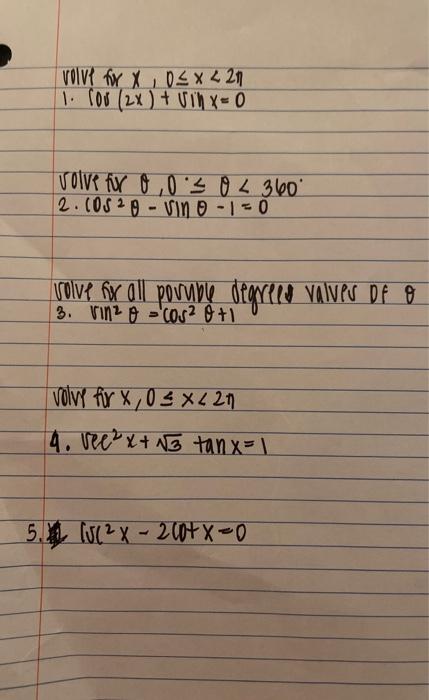 solve for x, 0 ≤ x < 2π
1. cos (2x) + sin x = 0
solve for θ, 0° ≤ θ < 360°
2. cos² θ - sin θ - 1 = 0
solve for all possible degrees values of θ
3. sin² θ = cos² θ + 1
solve for x, 0 ≤ x < 2π
4. sec² x + √3 tan x = 1
5. csc² x - 2cot x = 0